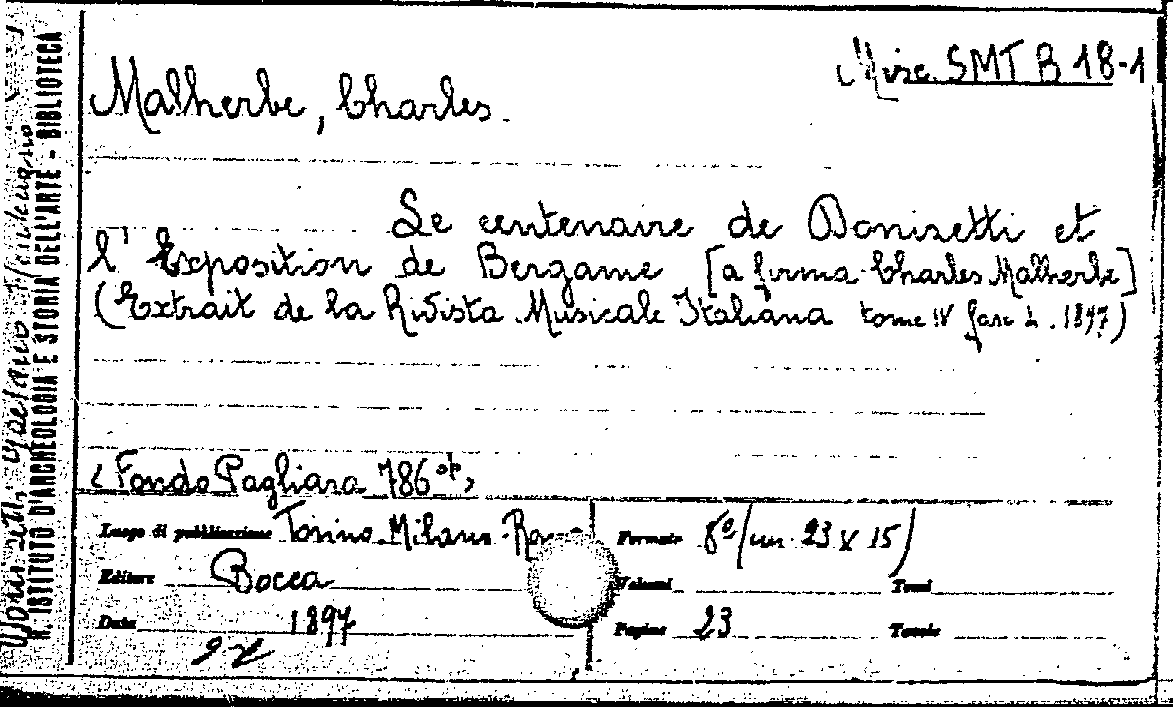 Misc. SMT B 18-1
Malherbe, Charles.
Le centenaire de Donizetti et
l'Exposition de Bergame [a firma Charles Malherbe]
(Extrait de la Rivista Musicale Italiana tome IV fasc 4. 1897)
<Fondo Pagliara 786 >
Luogo di pubblicazione Torino. Milano - Roma
Editore Bocca
Data 1897
Formato 8º (cm. 23 x 15)
Volumi
Tomi
Pagine 23
Tavole
R. ISTITUTO D'ARCHEOLOGIA E STORIA DELL'ARTE - BIBLIOTECA
Donizetti Gaetano